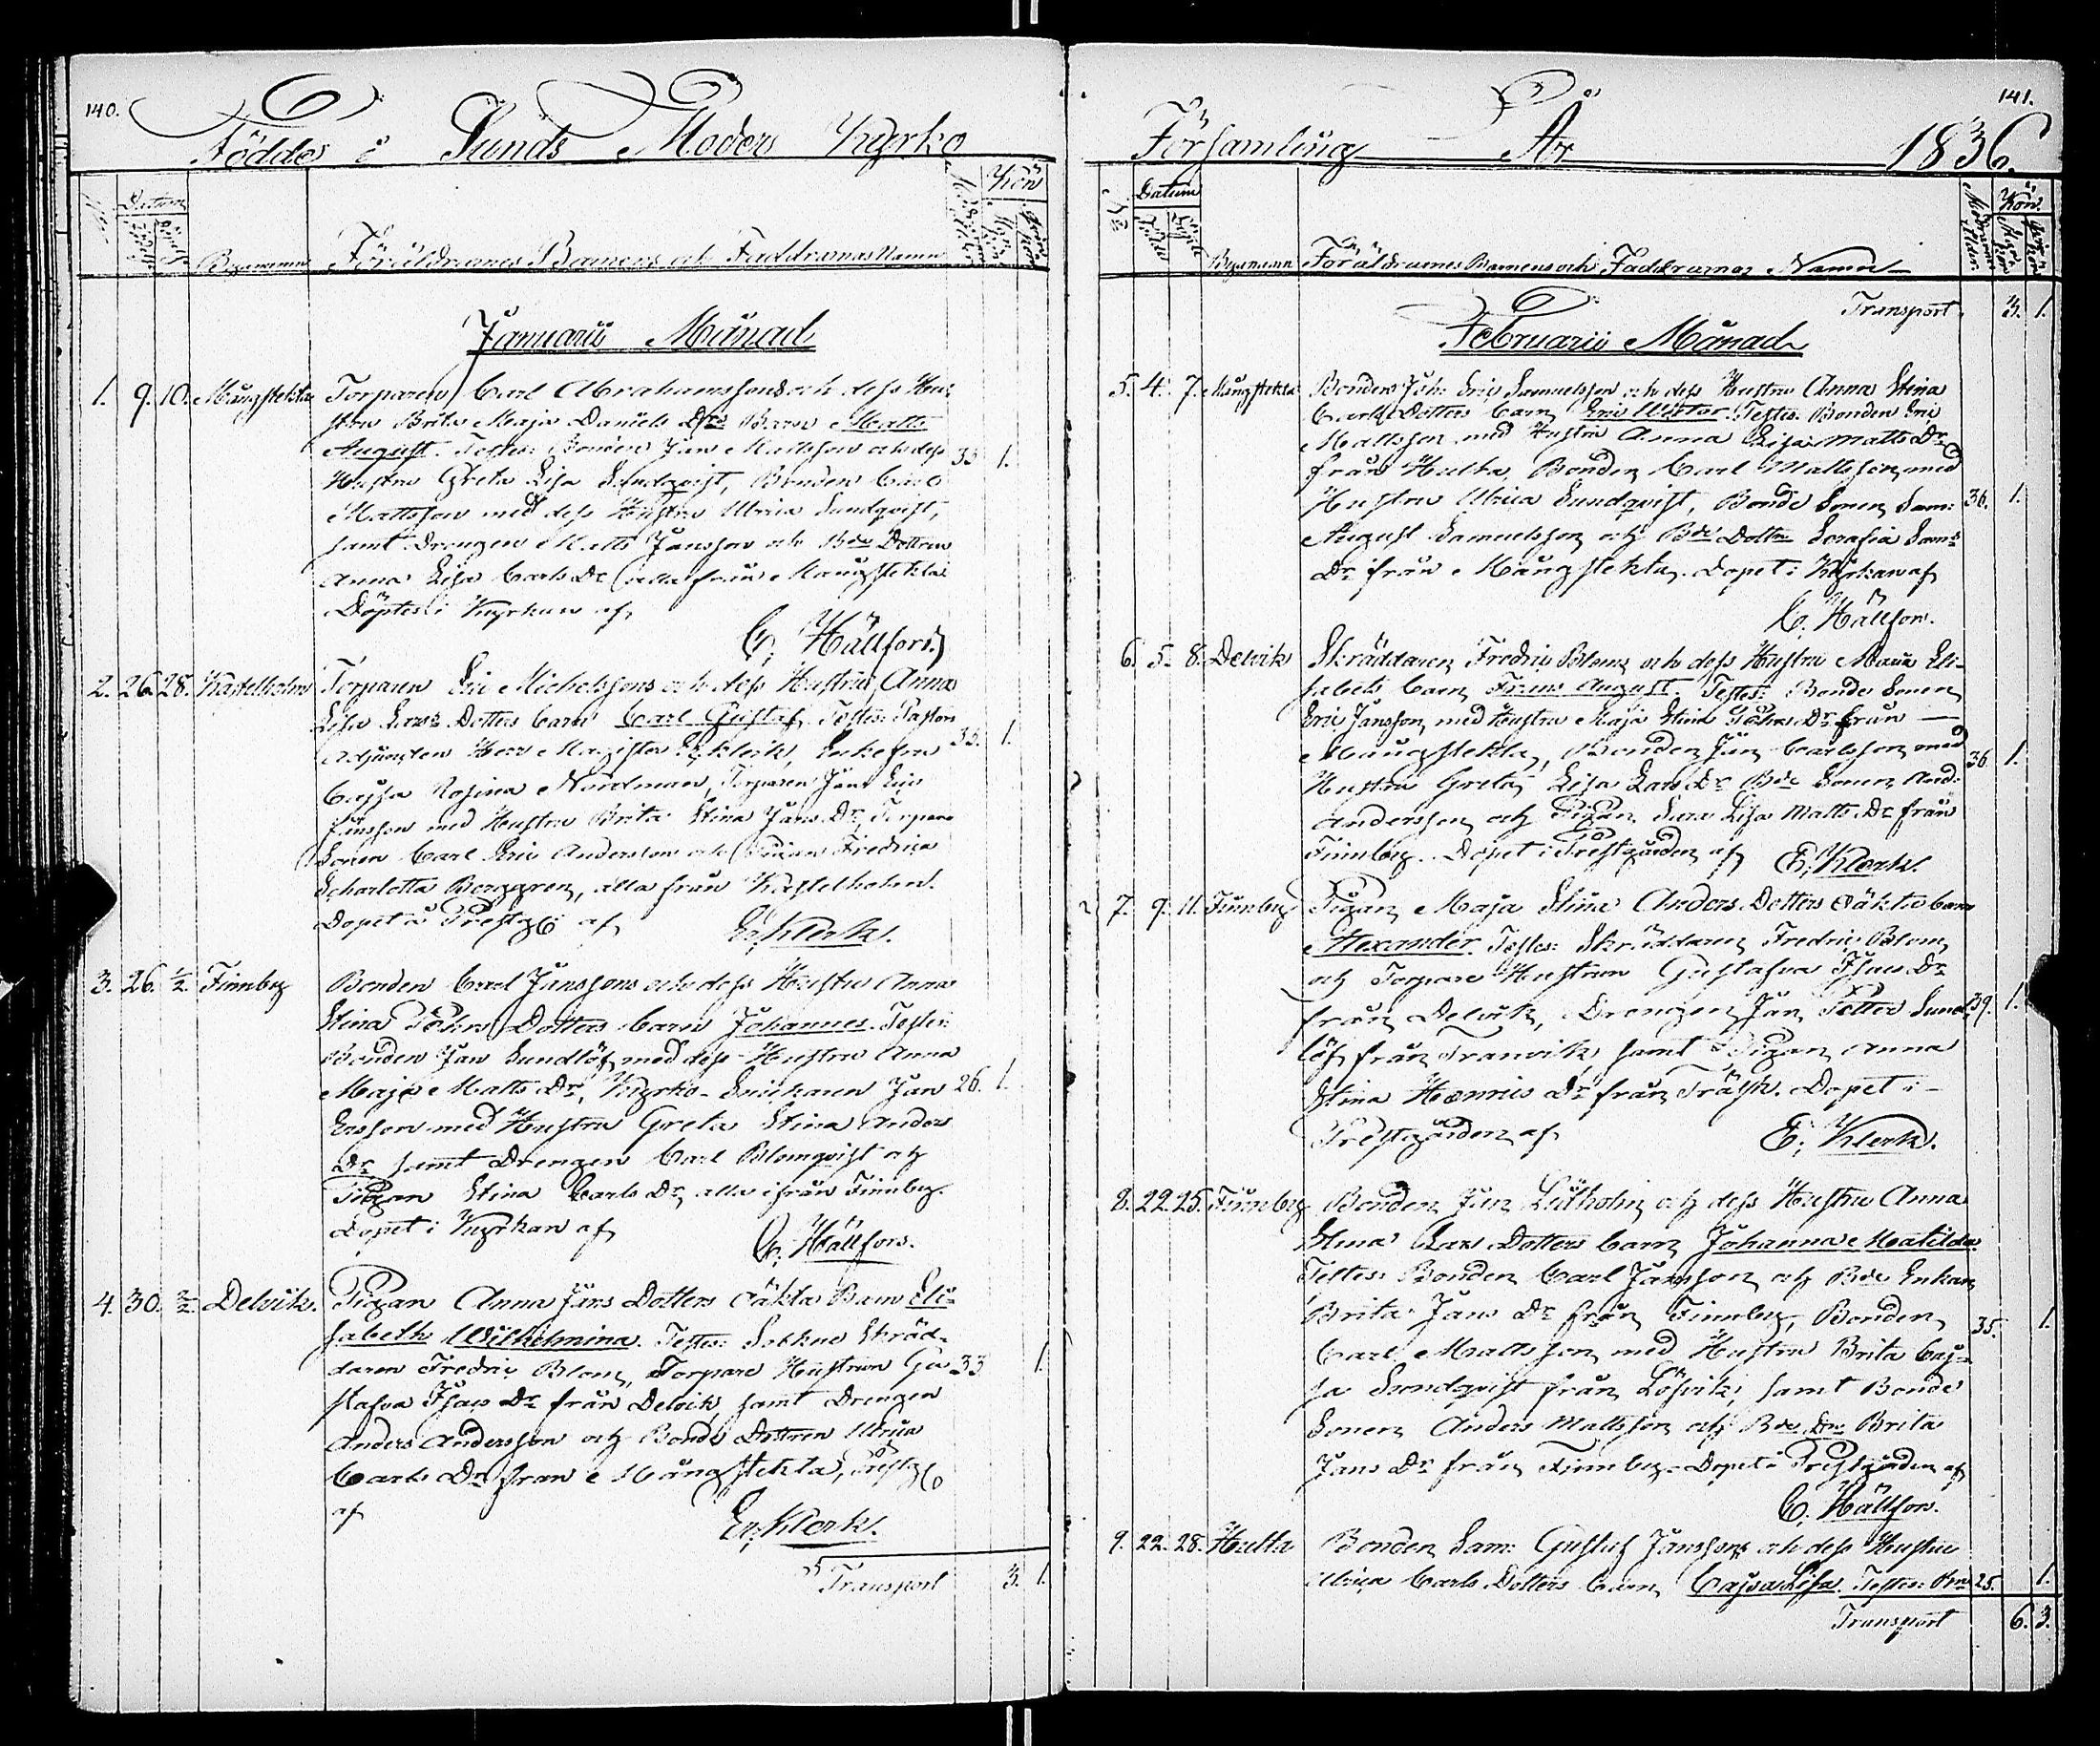 140.
Föddes i Sunds Moder Kyrko
Datum
Kön
Byanamn Föräldrarnes Barnens och Faddrarnas Namn
Januarii Månad
1. 9. 10. Mångstekta Torparen Carl Abrahamssons och dess Hu-
stru Brita Maja Daniels Drs Barn Matts
August. Testes: Bonden Jan Mattsson och dess 33. 1.
Hustru Greta Lisa Sundqvist, Bonden Carl
Mattsson med dess Hustru Ulrica Sundqvist,
samt Drengen Matts Jansson och Bde Dottren
Anna Lisa Carls Dr alla från Mångstekta
Döptes i Kyrkan af
C. Hällfors.
2. 26. 28. Kastelholm Torparen Eric Michelssons och dess Hustrus Anna
Lisa Lars Dotters barn Carl Gustaf. Testes: Pastors
Adjuncten Herr Magister E. Klerk, Enkefru 35. 1.
Cajsa Rosina Nordman, Torparen Jan Eric
Jansson med Hustru Brita Stina Jans Dr, Torpare
Sonen Carl Eric Andersson och Pigan Fredrica
Scharlotta Berggren, alla från Kastelholm.
Döpet i Prestg: af
E. Klerk.
3. 26. 1/2. Finnby Bonden Carl Janssons och dess Hustru Anna
Stina Pehrs Dotters barn Johannes. Testes:
Bonden Jan Sundlöf med dess Hustru Anna
Maja Matts Dr, Kyrko-Snickaren Jan 26. 1.
Ersson med Hustru Greta Stina Anders
Dr samt Drengen Carl Blomqvist och
Pigan Stina Carls Dr, alla ifrån Finnby.
Döpet i Kyrkan af
C. Hällfors.
4. 30. 2/2 Delvik. Pigan Anna Jans Dotters oäkta Barn Eli-
sabeth Wilhelmina. Testes: Sockne Skräd-
daren Fredric Blom, Torpare Hustrun Gu- 33 1.
stafva Isacs Dr från Delvik, samt Drengen
Anders Andersson och Bonde Dottren Ulrica
Carls Dr från Mångstekta, Prestg:
af
E. Klerk.
Transport 3. 1.
141.
Församling År 1836.
Datum
Kön.
Byanamn Föräldrarnes Barnens och Faddrarnas Namn
Transport 3. 1.
Februarii Månad
5. 4. 7. Mångstekta Bonden Joh: Eric Samuelsson och dess Hustru Anna Stina
Carls Dotters barn Eric Victor. Testes. Bonden Eric
Mattsson med Hustru Anna Lisa Matts Dr
från Hulta, Bonden Carl Mattsson med
Hustru Ulrica Sundqvist, Bonde Sonen Sam: 36. 1.
August Samuelsson och Bde Dottr. Serafia Sams
Dr från Mångstekta. Döpet i Kyrkan af
C. Hällfors.
6. 5. 8. Delvik Skräddaren Fredric Blom och dess Hustru Maria Eli-
sabets barn Frans August. Testes: Bonde Sonen
Eric Jansson med Hustru Maja Stina Pehrs Dr från
Mångstekta, Bonden Jan Carlsson med 36. 1.
Hustru Greta Lisa Lars Dr Bde Sonen And:
Andersson och Pigan Sara Lisa Matts Dr från
Finnby. Döpet i Prestgården af E. Klerk.
7. 9. 11. Finnby Pigan Maja Stina Anders Dotters oäkta barn
Alexander. Testes: Skräddaren Fredric Blom
och Torpare Hustrun Gustafva Isacs Dr
från Delvik, Drengen Jan Petter Sund- 39. 1.
löf från Tranvik, samt Pigan Anna
Stina Henrics Dr från Träsk. Döpet i
Prestgården af E. Klerk.
8. 22. 25. Finnby Bonden Jan Lilholm och dess Hustru Anna
Stina Lars Dotters barn Johanna Matilda.
Testes: Bonden Carl Jansson och Bde Enkan
Brita Jans Dr från Finnby, Bonden 35. 1.
Carl Mattsson med Hustru Brita Caj-
sa Sundqvist från Löfvik, samt Bonde
Sonen Anders Mattsson och Bde Dr Brita
Jans Dr från Finnby. Döpet i Prestgården af
C. Hällfors.
9. 22. 28. Hulta Bonden Sam: Gustaf Janssons och dess Hustru
Ulrica Carls Dotters barn Cajsa Lisa. Testes: 25. 1.
Transport 6. 3.